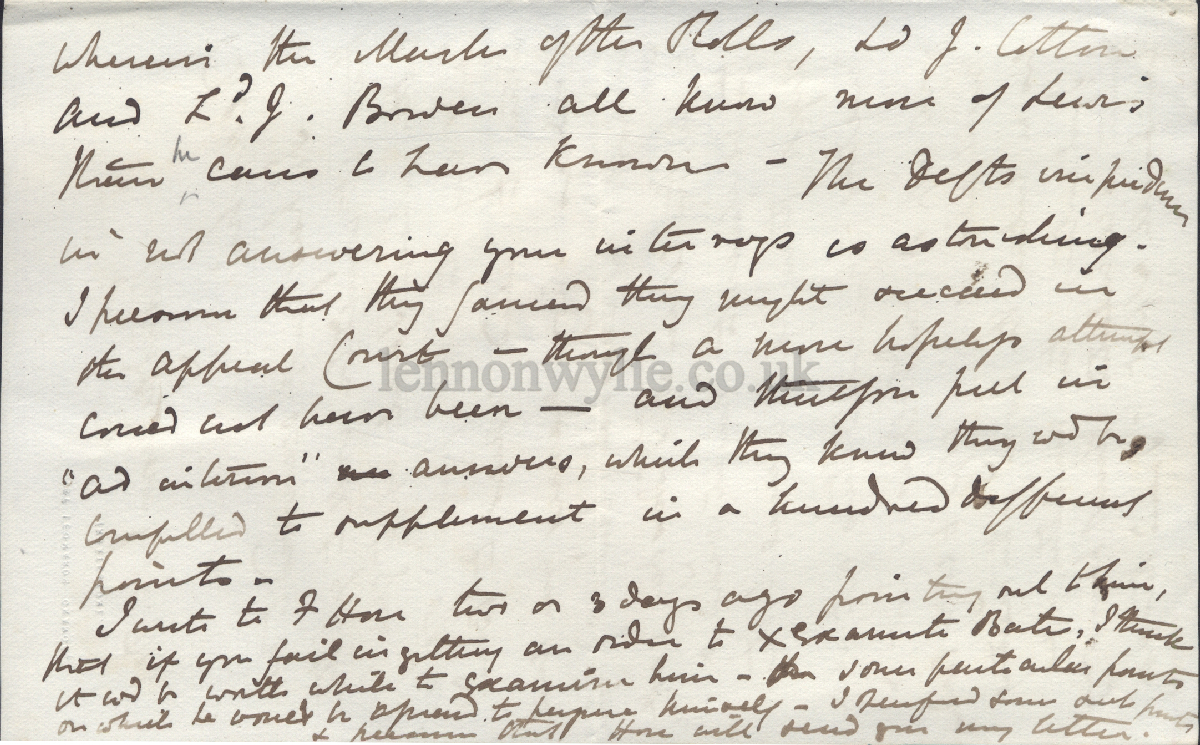 wherein the Master of the Rolls, Ld J. Cotton
and Ld. J. Bowen all know more of Lewis
than he cares to have known - The Defts impudence
in not answering your interrogs is astonishing.
I presume that they fancied they might succeed in
the appeal Court - though a more hopeless attempt
could not have been - and therefore put in
"ad interim" answers, which they knew they wd be
compelled to supplement in a hundred different
points -
I wrote to F Hore two or 3 days ago pointing out to him,
that if you fail in getting an order to x examine Bate, I think
it wd be worth while to examine him - on some particular points
on which he would be afraid to perjure himself - I specified some such points
& presume that Hore will send you my letter.
lennonwylie.co.uk